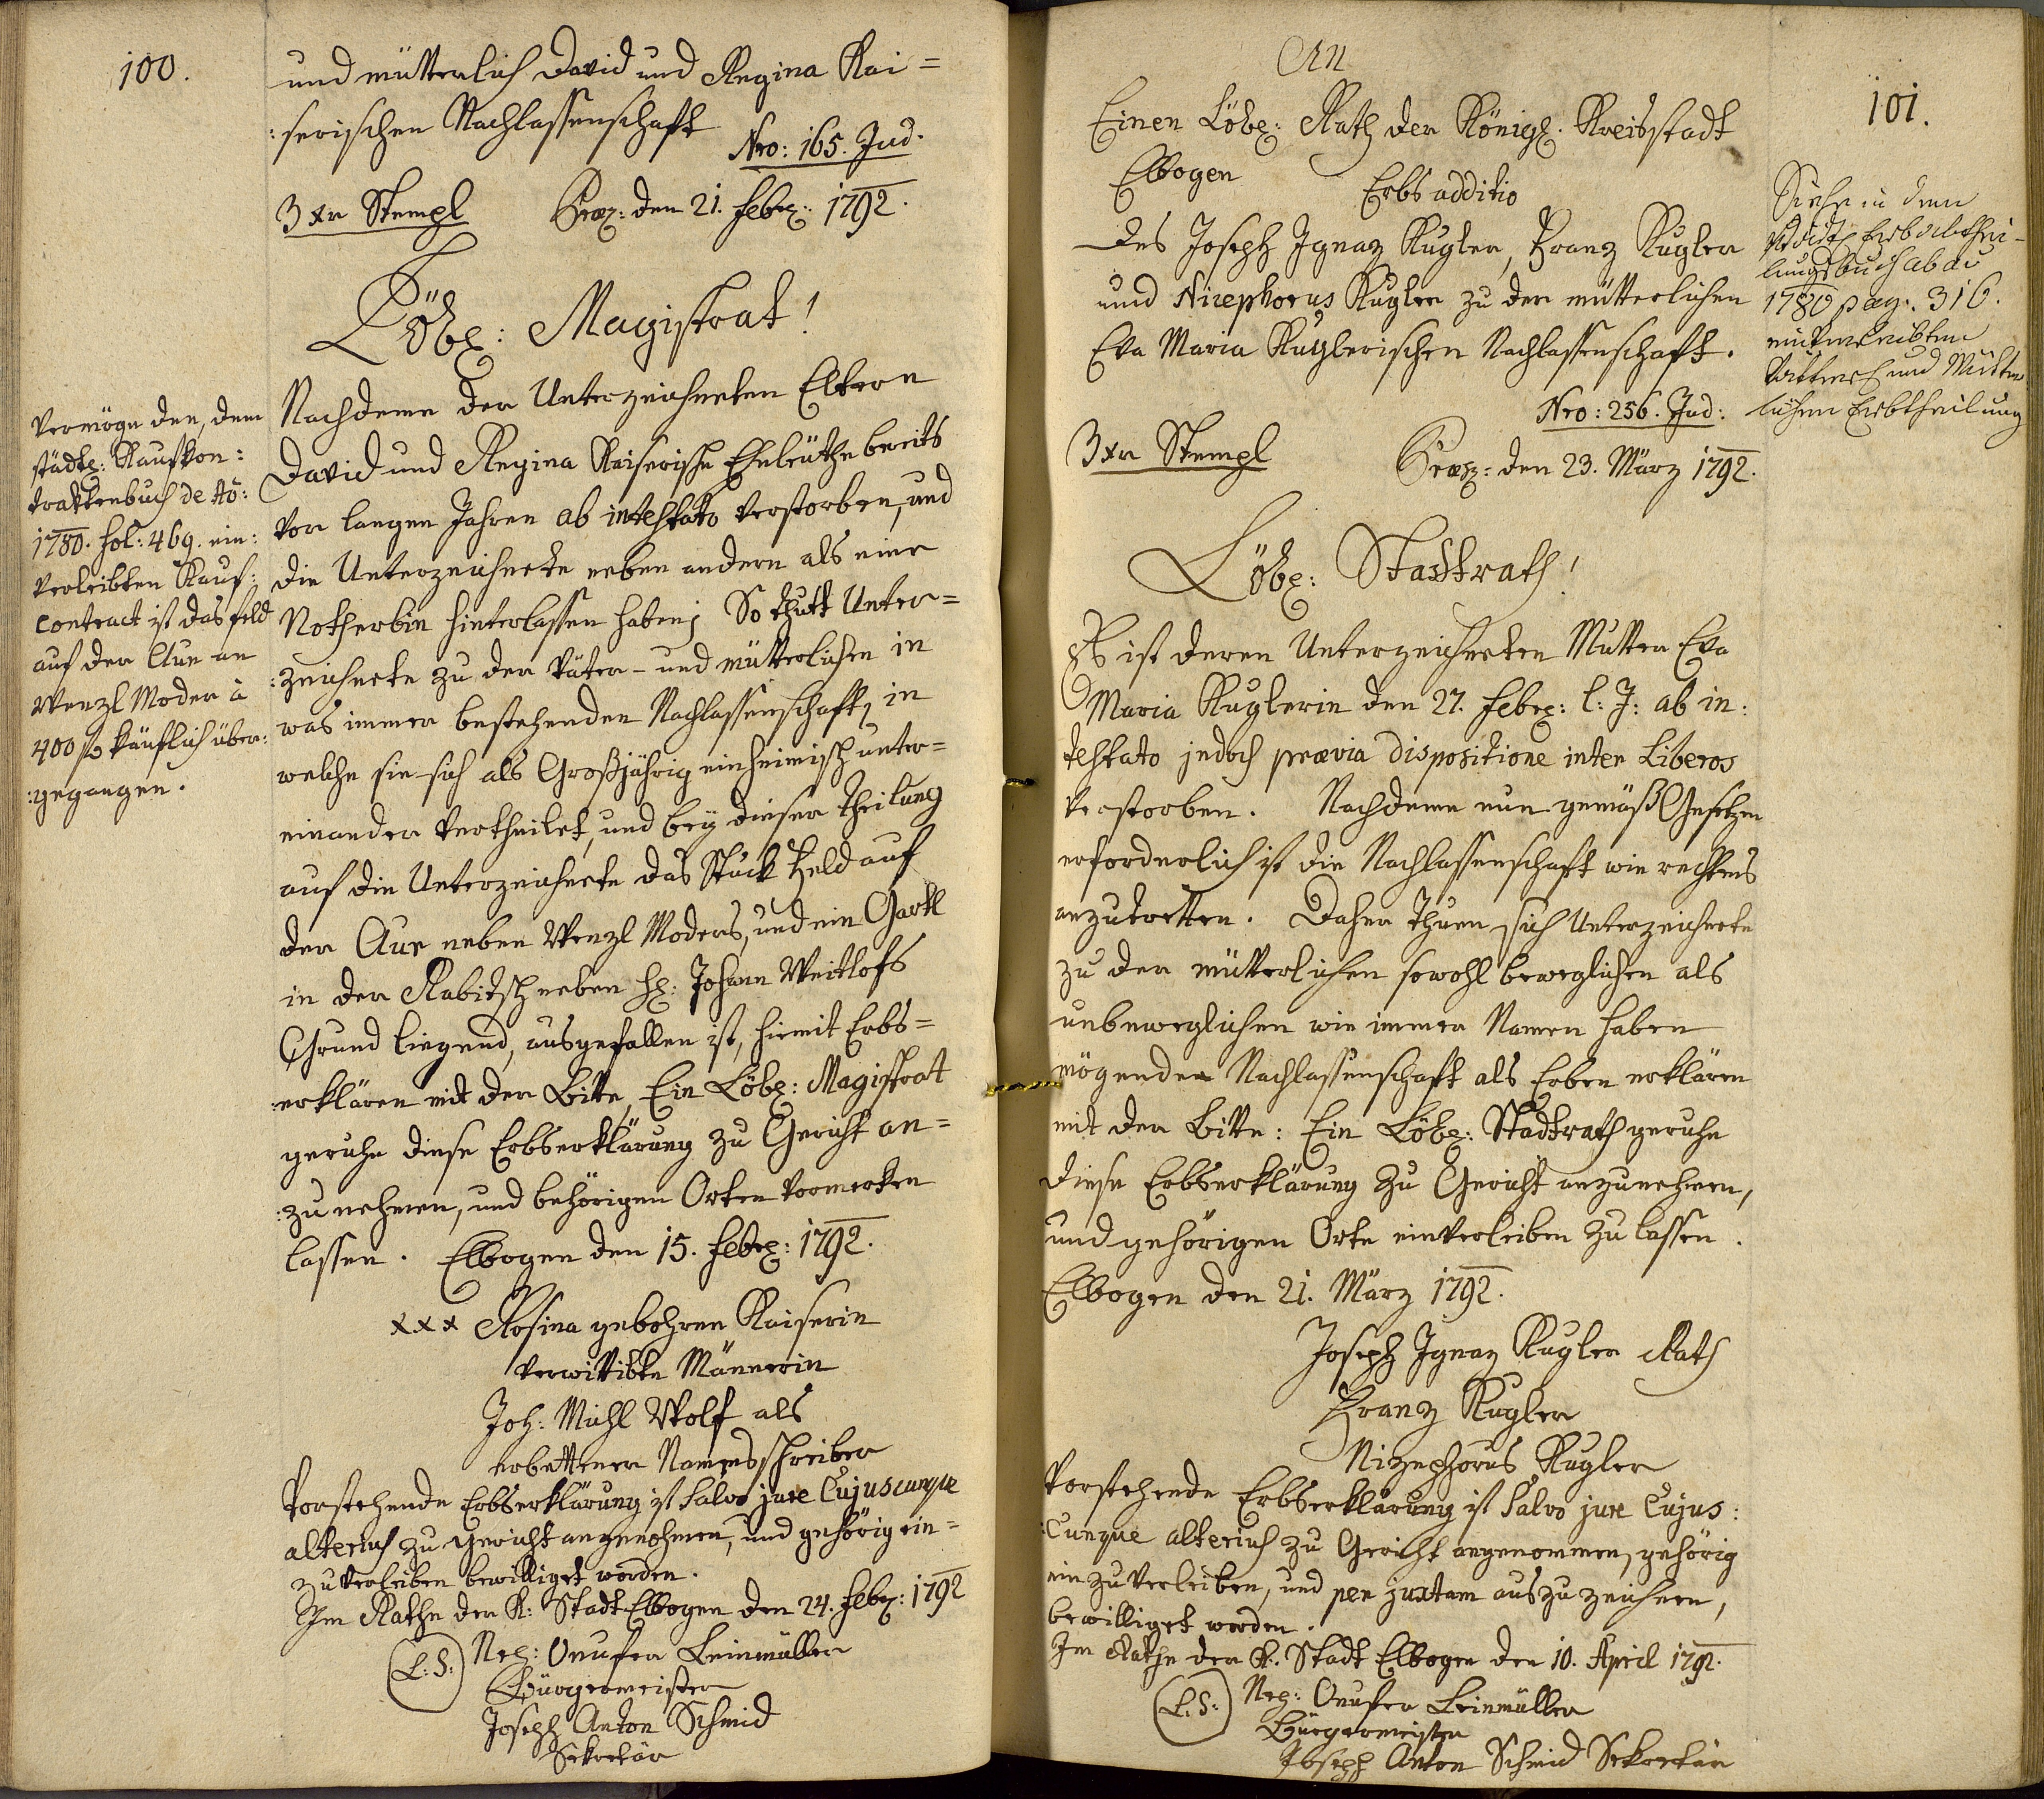 100.
und mütterlich David und Regina Kai=
:serischen Nachlassenschaft
Nro: 165. Jud.
3 xr Stempl Præs: den 21. Febr: 1792.
Löbl: Magistrat!
Vermöge den, dem
städtl: Kaufkon:
traktenbuch de Ao:
1780. fol: 469. ein:
verleibten Kauf:
contract ist das Feld
auf der Aue an
Wenzl Moder à
400 f käuflich über:
:gegangen.
Nachdeme der Unterzeichneten Eltern
David und Regina Kaiserische Eheleuthe bereits
vor langen Jahren ab intestato verstorben, und
die Unterzeichnete neben andern als eine
Notherbin hinterlassen haben; So thutt Unter=
:zeichnete zu der Väter- und mütterlichen in
was immer bestehenden Nachlassenschaft, in
welche sie sich als Großjährig einheimisch unter=
einander vertheilet, und bey dieser Theilung
auf die Unterzeichnete das Stück Feld auf
der Aue neben Wenzl Moders, und ein Gartl
in der Rabitsch neben H: Johann Weitlofs
Grund liegend, ausgefallen ist, hiemit Erbs=
:erklären mit der Bitte, Ein Löbl: Magistrat
geruhe diese Erbserklärung zu Gericht an=
:zu nehmen, und behörigen Orten vormerken
lassen. Elbogen den 15. Febr: 1792.
xxx Rosina gebohrne Kaiserin
verwittibte Männerin
Joh: Michl Wolf als
erbettener Namensschreiber
Vorstehende Erbserklärung ist Salvo jure Cujuscunque
alterius zu Gericht angenohmen, und gehörig ein=
zuverleiben bewilliget worden.
Im Rathe der K: Stadt Elbogen den 24. Febr: 1792
(L: S:) Nep: Onufer Leinmüller
Bürgermeister
Joseph Anton Schmid
Sekretär
101.
An
Einen Löbl: Rath der Königl. Kreisstadt
Elbogen
Erbs additio
des Joseph Ignaz Kugler, Franz Kugler
und Nicephorus Kugler zu der mütterlichen
Eva Maria Kuglerischen Nachlassenschaft.
Nro: 256. Jud:
Siehe in dem
Stadt Erbabthei-
lungsbuch ab ao
1780 pag. 316.
einverleibten
Vatterlich und Mütter
lichen Erbtheilung
3 xr Stempl Præs: den 23. März 1792.
Löbl: Stadtrath!
Es ist deren Unterzeichneten Mutter Eva
Maria Kuglerin den 27. Febr: l: J: ab in:
testato jedoch prævia dispositione inter Liberos
verstorben. Nachdeme nun gemäß Gesetzen
erforderlich ist die Nachlassenschaft wie rechtens
anzutretten. Daher thuen sich Unterzeichnete
zu der mütterlichen sowohl beweglichen als
unbeweglichen wie immer Namen haben
mögenden Nachlassenschaft als Erben erklären
mit der Bitte: Ein Löbl: Stadtrath geruhe
diese Erbserklärung zu Gericht anzunehmen,
und gehörigen Orte einverleiben zu lassen.
Elbogen den 21. März 1792.
Joseph Ignaz Kugler Rath
Franz Kugler
Nizephorus Kugler
Vorstehende Erbserklärung ist Salvo jure Cujus:
:Cunque alterius zu Gericht angenommen, gehörig
einzuverleiben, und per juxtam auszuzeichnen,
bewilliget worden.
Im Rathe der K. Stadt Elbogen den 10. April 1792.
(L. S:) Nep: Onufer Leinmüller
Bürgermeister
Joseph Anton Schmid Sekretär